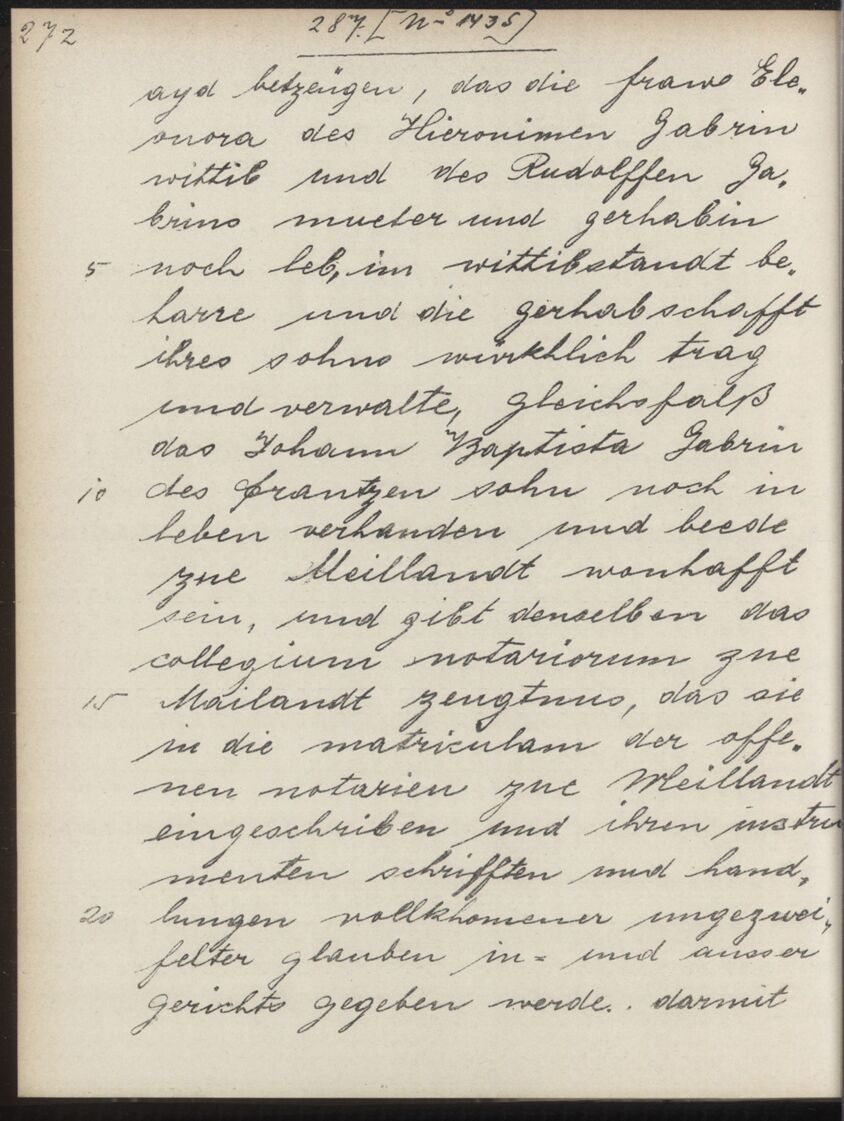 272
287. [No 1435]
ayd betzeügen, das die fraw Ele„
onora des Hieronimen Gabrin
wittib und des Rudolffen Ga„
brins mueter und gerhabin
5 noch leb, im wittibstandt be„
harre und die gerhabschafft
ihres sohns würkhlich trag
und verwalte, gleichsfalß
das Johann Baptista Gabrin
10 des Frantzen sohn noch in
leben verhanden und beede
zue Meillandt wonhafft
sein, und gibt denselben das
collegium notariorum zue
15 Mailandt zeugtnus, das sie
in die matriculam der offe„
nen notarien zue Meillandt
eingeschriben und ihren instru
menten schrifften und hand„
20 lungen vollkhomener ungezwei„
felter glauben in= und ausser
gerichts gegeben werde.. darmit